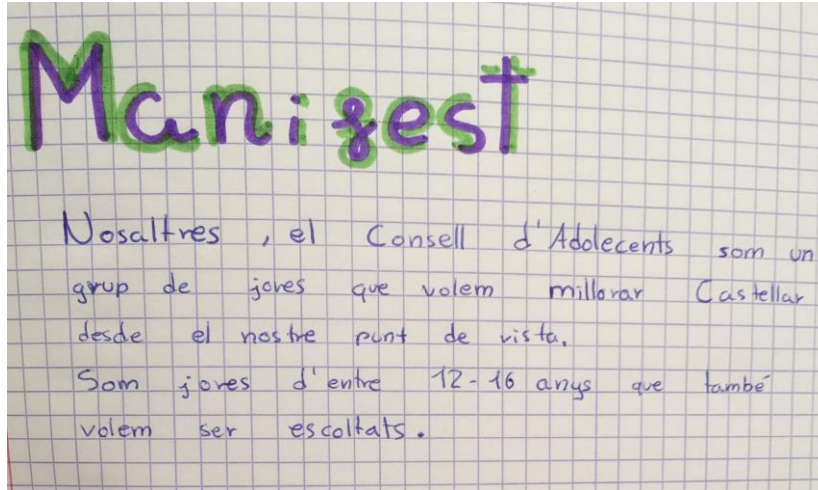 Manifest
Nosaltres, el Consell d'Adolecents som un
grup de joves que volem millorar Castellar
desde el nostre punt de vista.
Som joves d'entre 12-16 anys que també
volem ser escoltats.